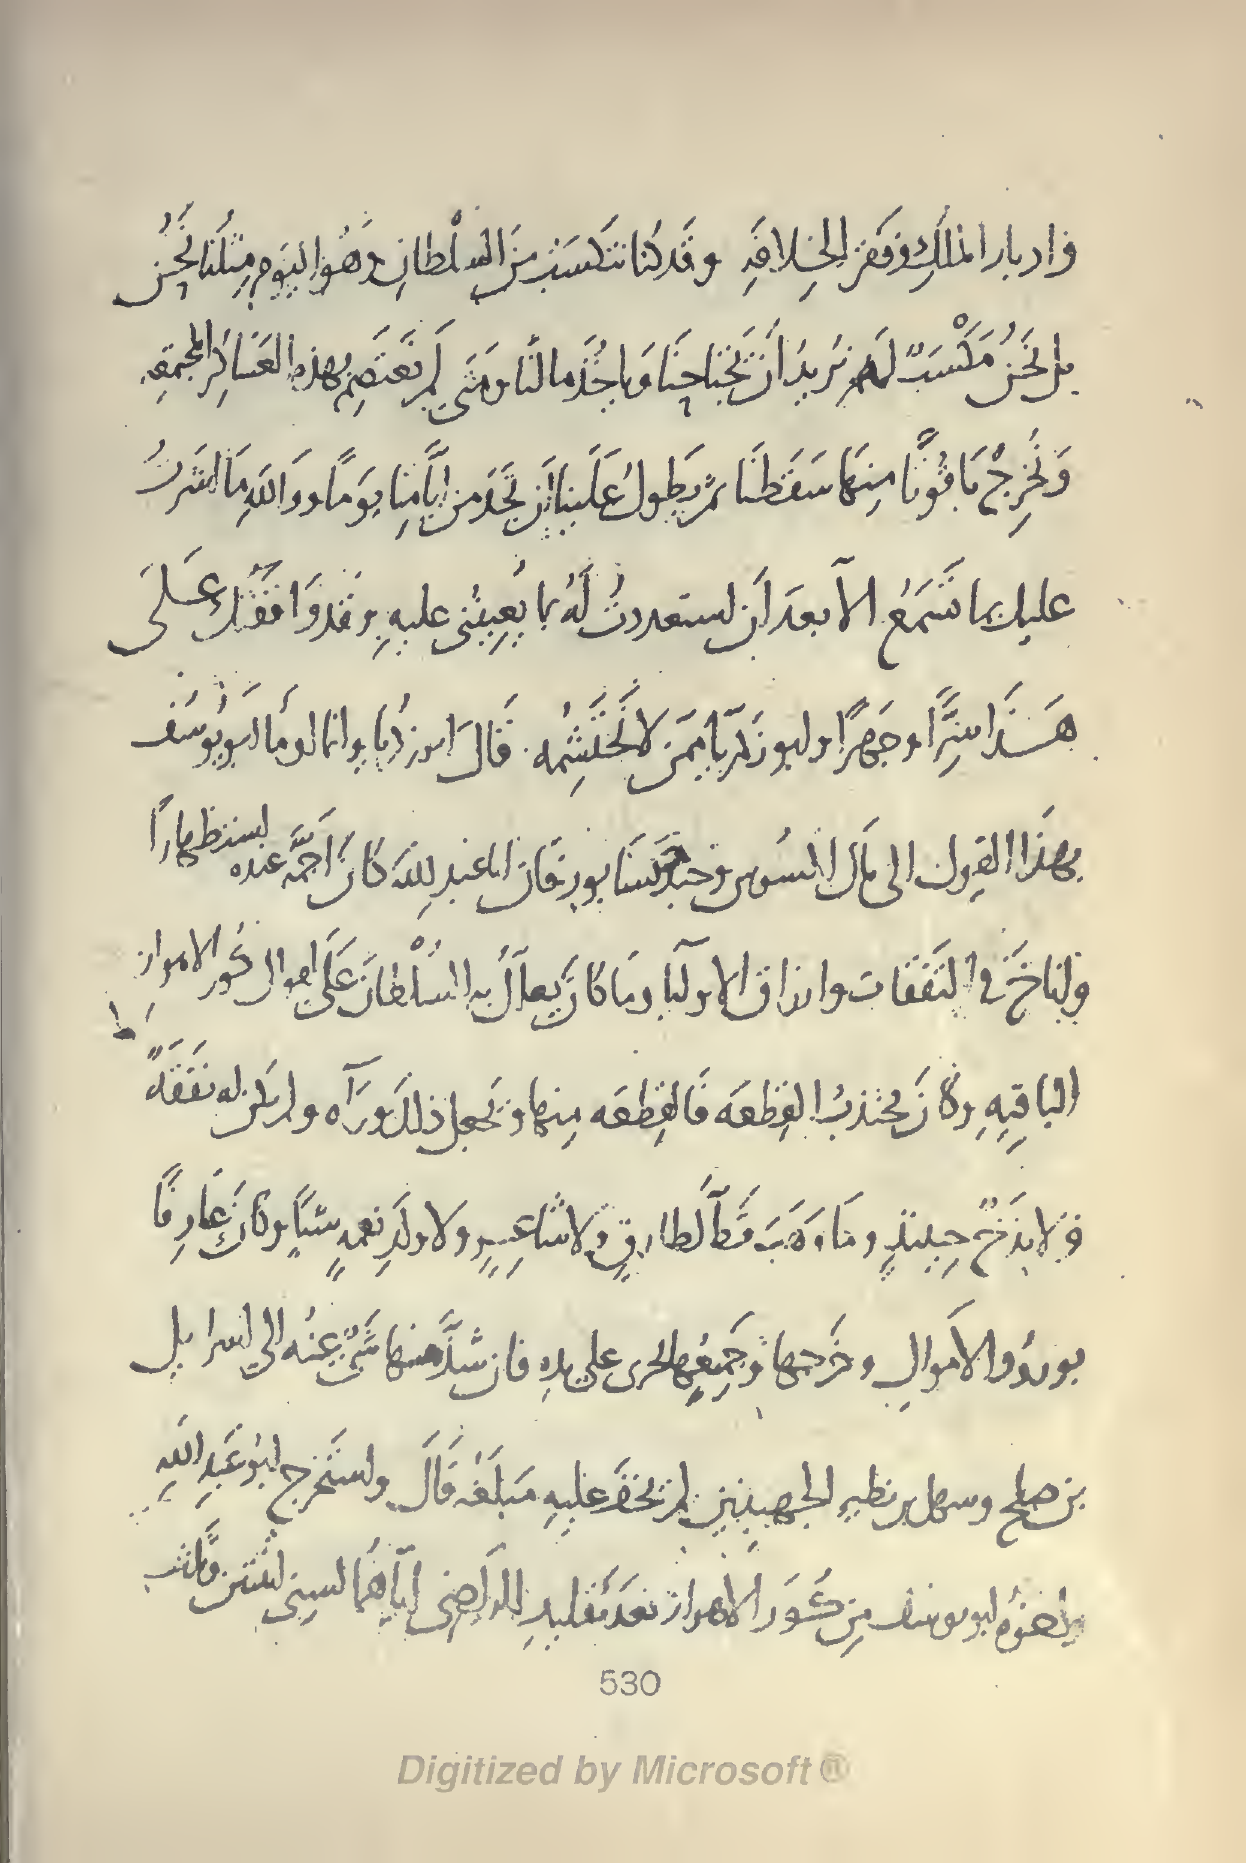 وادبار الملك وفقر الخلافة وقد كنا نتكسب من السلطان وهو اليوم مثلنا نحن
بل نحن مكسب لهم نريد أن نجتاحنا وياخذ مالنا ومتى لم نعتصم بهذه العساكر المجمعة
ونخرج ياقوتا منها سقطنا ثم يطول علينا أن نجد من ايامنا يوما ووالله ما اشرت
عليك بما تسمع الا بعد أن استعددت له بما يعينني عليه وقد وافقتك على
هذا سرا وجهرا وابو زكريا ممن لا نحتشمه قال ابو زكريا وانما اومأ ابو يوسف
بهذا القول الى مال السوس وجنديسابور فان ابا عبد الله كان اجمه عنده استظهارا
في النفقات وارزاق الاوليا وما كان يعلل به السلطان على اموال كور الاهواز
الباقيه وكان يجتذب القطعه فالقطعه منها ويجعل ذلك وراه ولم يكن له نفقة
ولا بذخ حينئذ وما وهب قط لطارق ولا شاعر ولا ولد نعمه شيا وكان عارفا
بوروود الاموال وخرجها وجميعها جرى على يده فان شذ منها شي عنه الى اسرايل
بن صلح وسهل بن نظير الجهبذين لم يخف عليه مبلغه قال واستخرج ابو عبد الله
واخوه ابو يوسف من كور الاهواز بعد تقليد الراضى اياهما لسنى اثنتين وثلث
530
Digitized by Microsoft ®